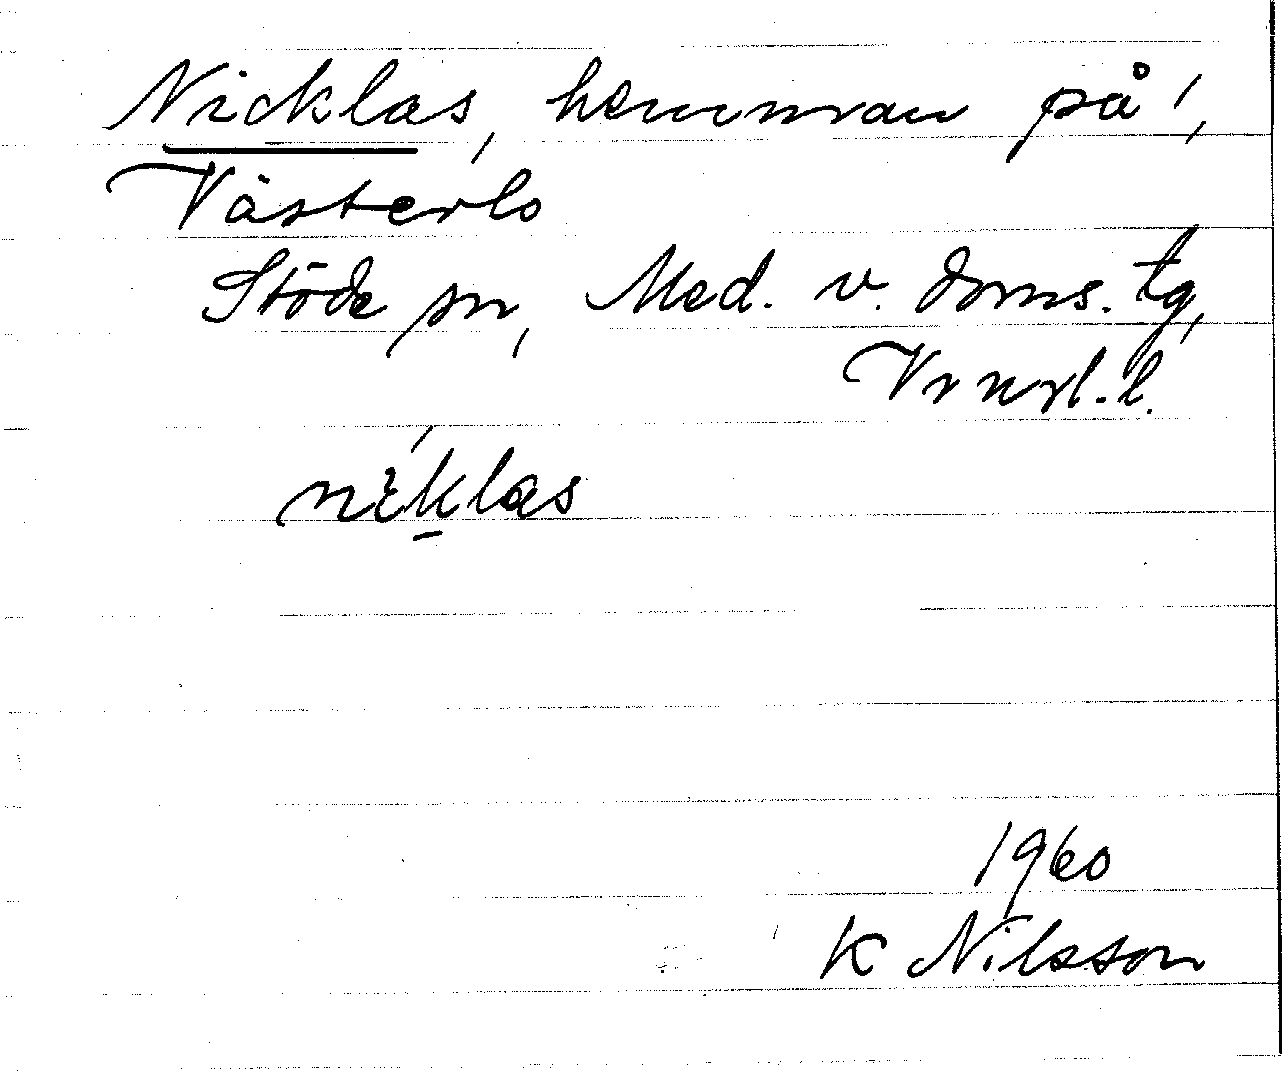 Nicklas, hemman på,
Västerlo
Stöde sn, Med. v. doms. tg,
Vrnrl. l.
niklas
1960
K Nilsson